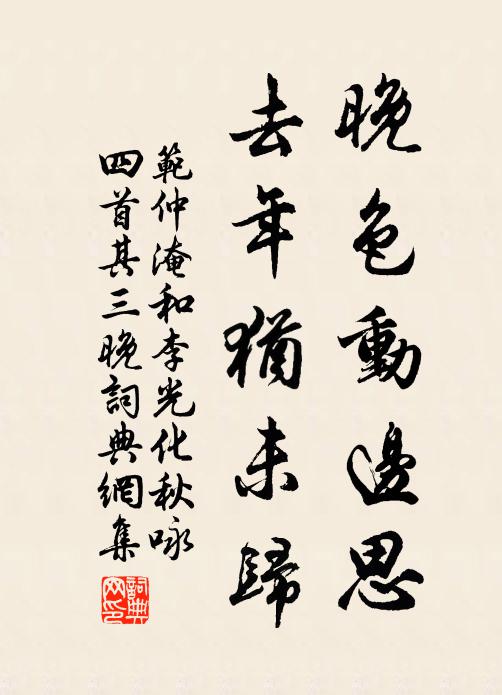 晚色動邊思
去年猶未歸
範仲淹和李光化秋咏
四首其三晚詞典網集
詞典
网印